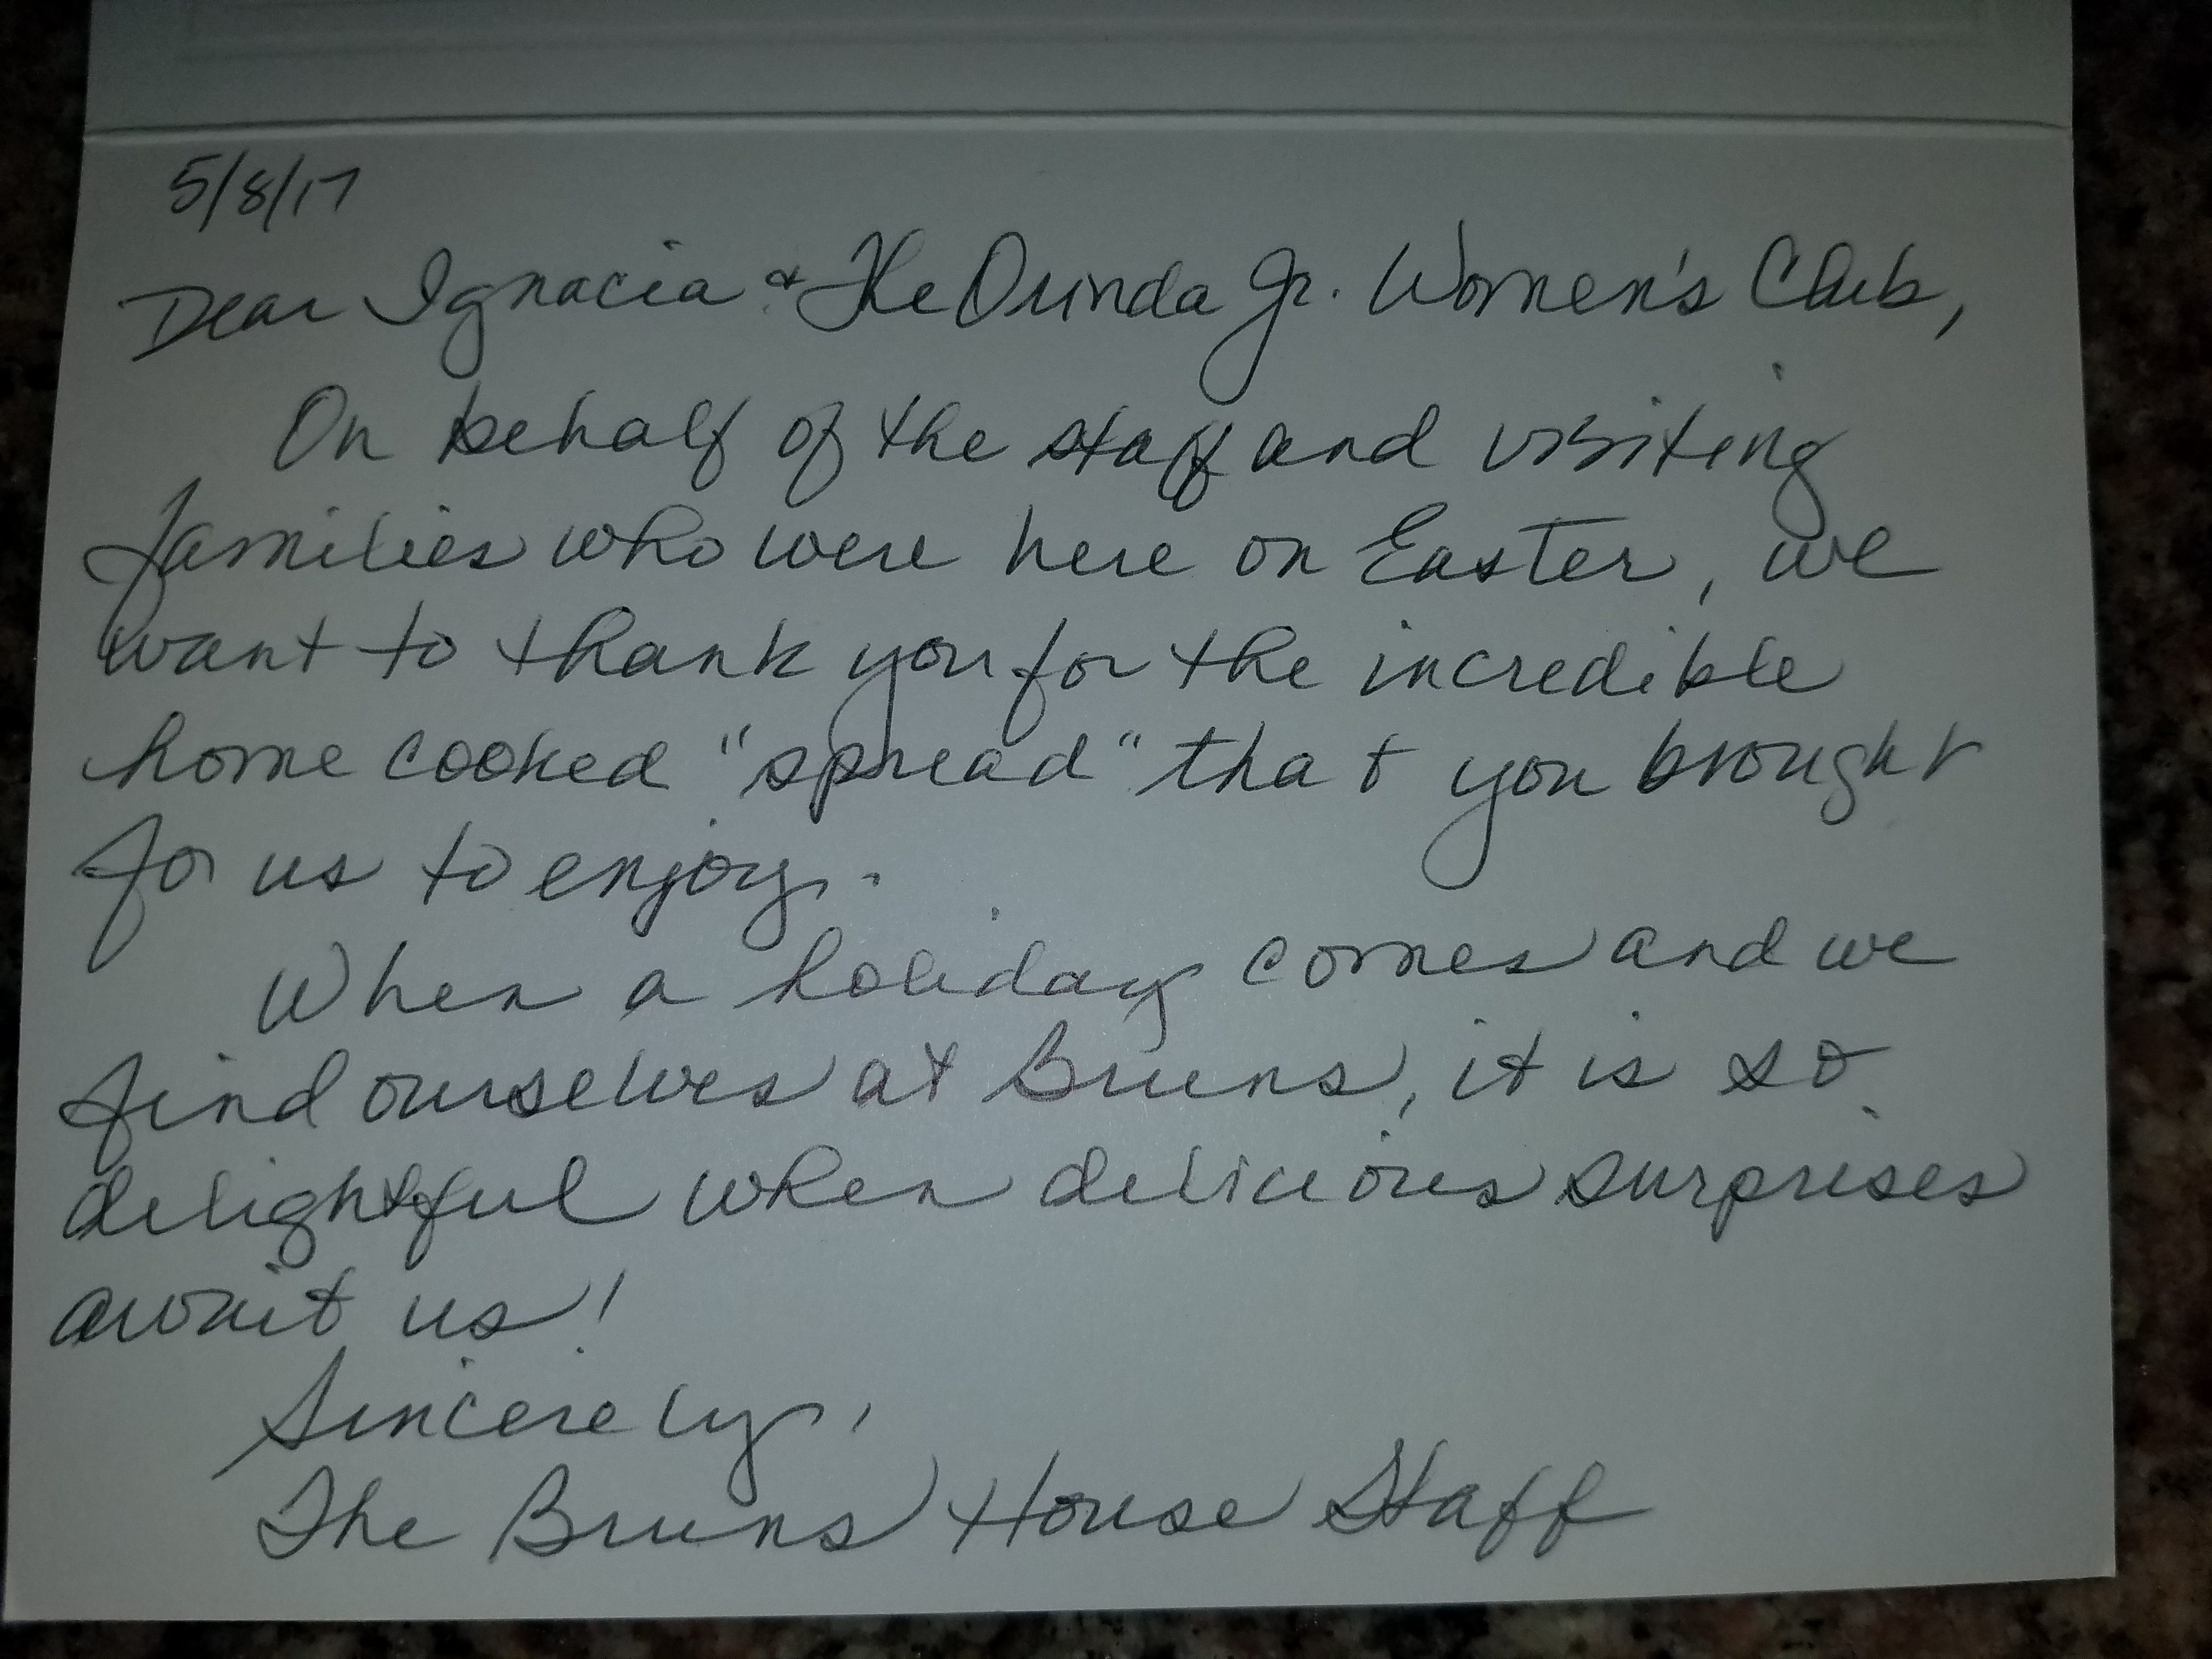 5/8/17
Dear Ignacia & The Orinda Jr. Women's Club,
On behalf of the staff and visiting
families who were here on Easter, we
want to thank you for the incredible
home cooked "spread" that you brought
for us to enjoy.
When a holiday comes and we
find ourselves at Bruns, it is so
delightful when delicious surprises
await us!
Sincerely,
The Bruns House Staff